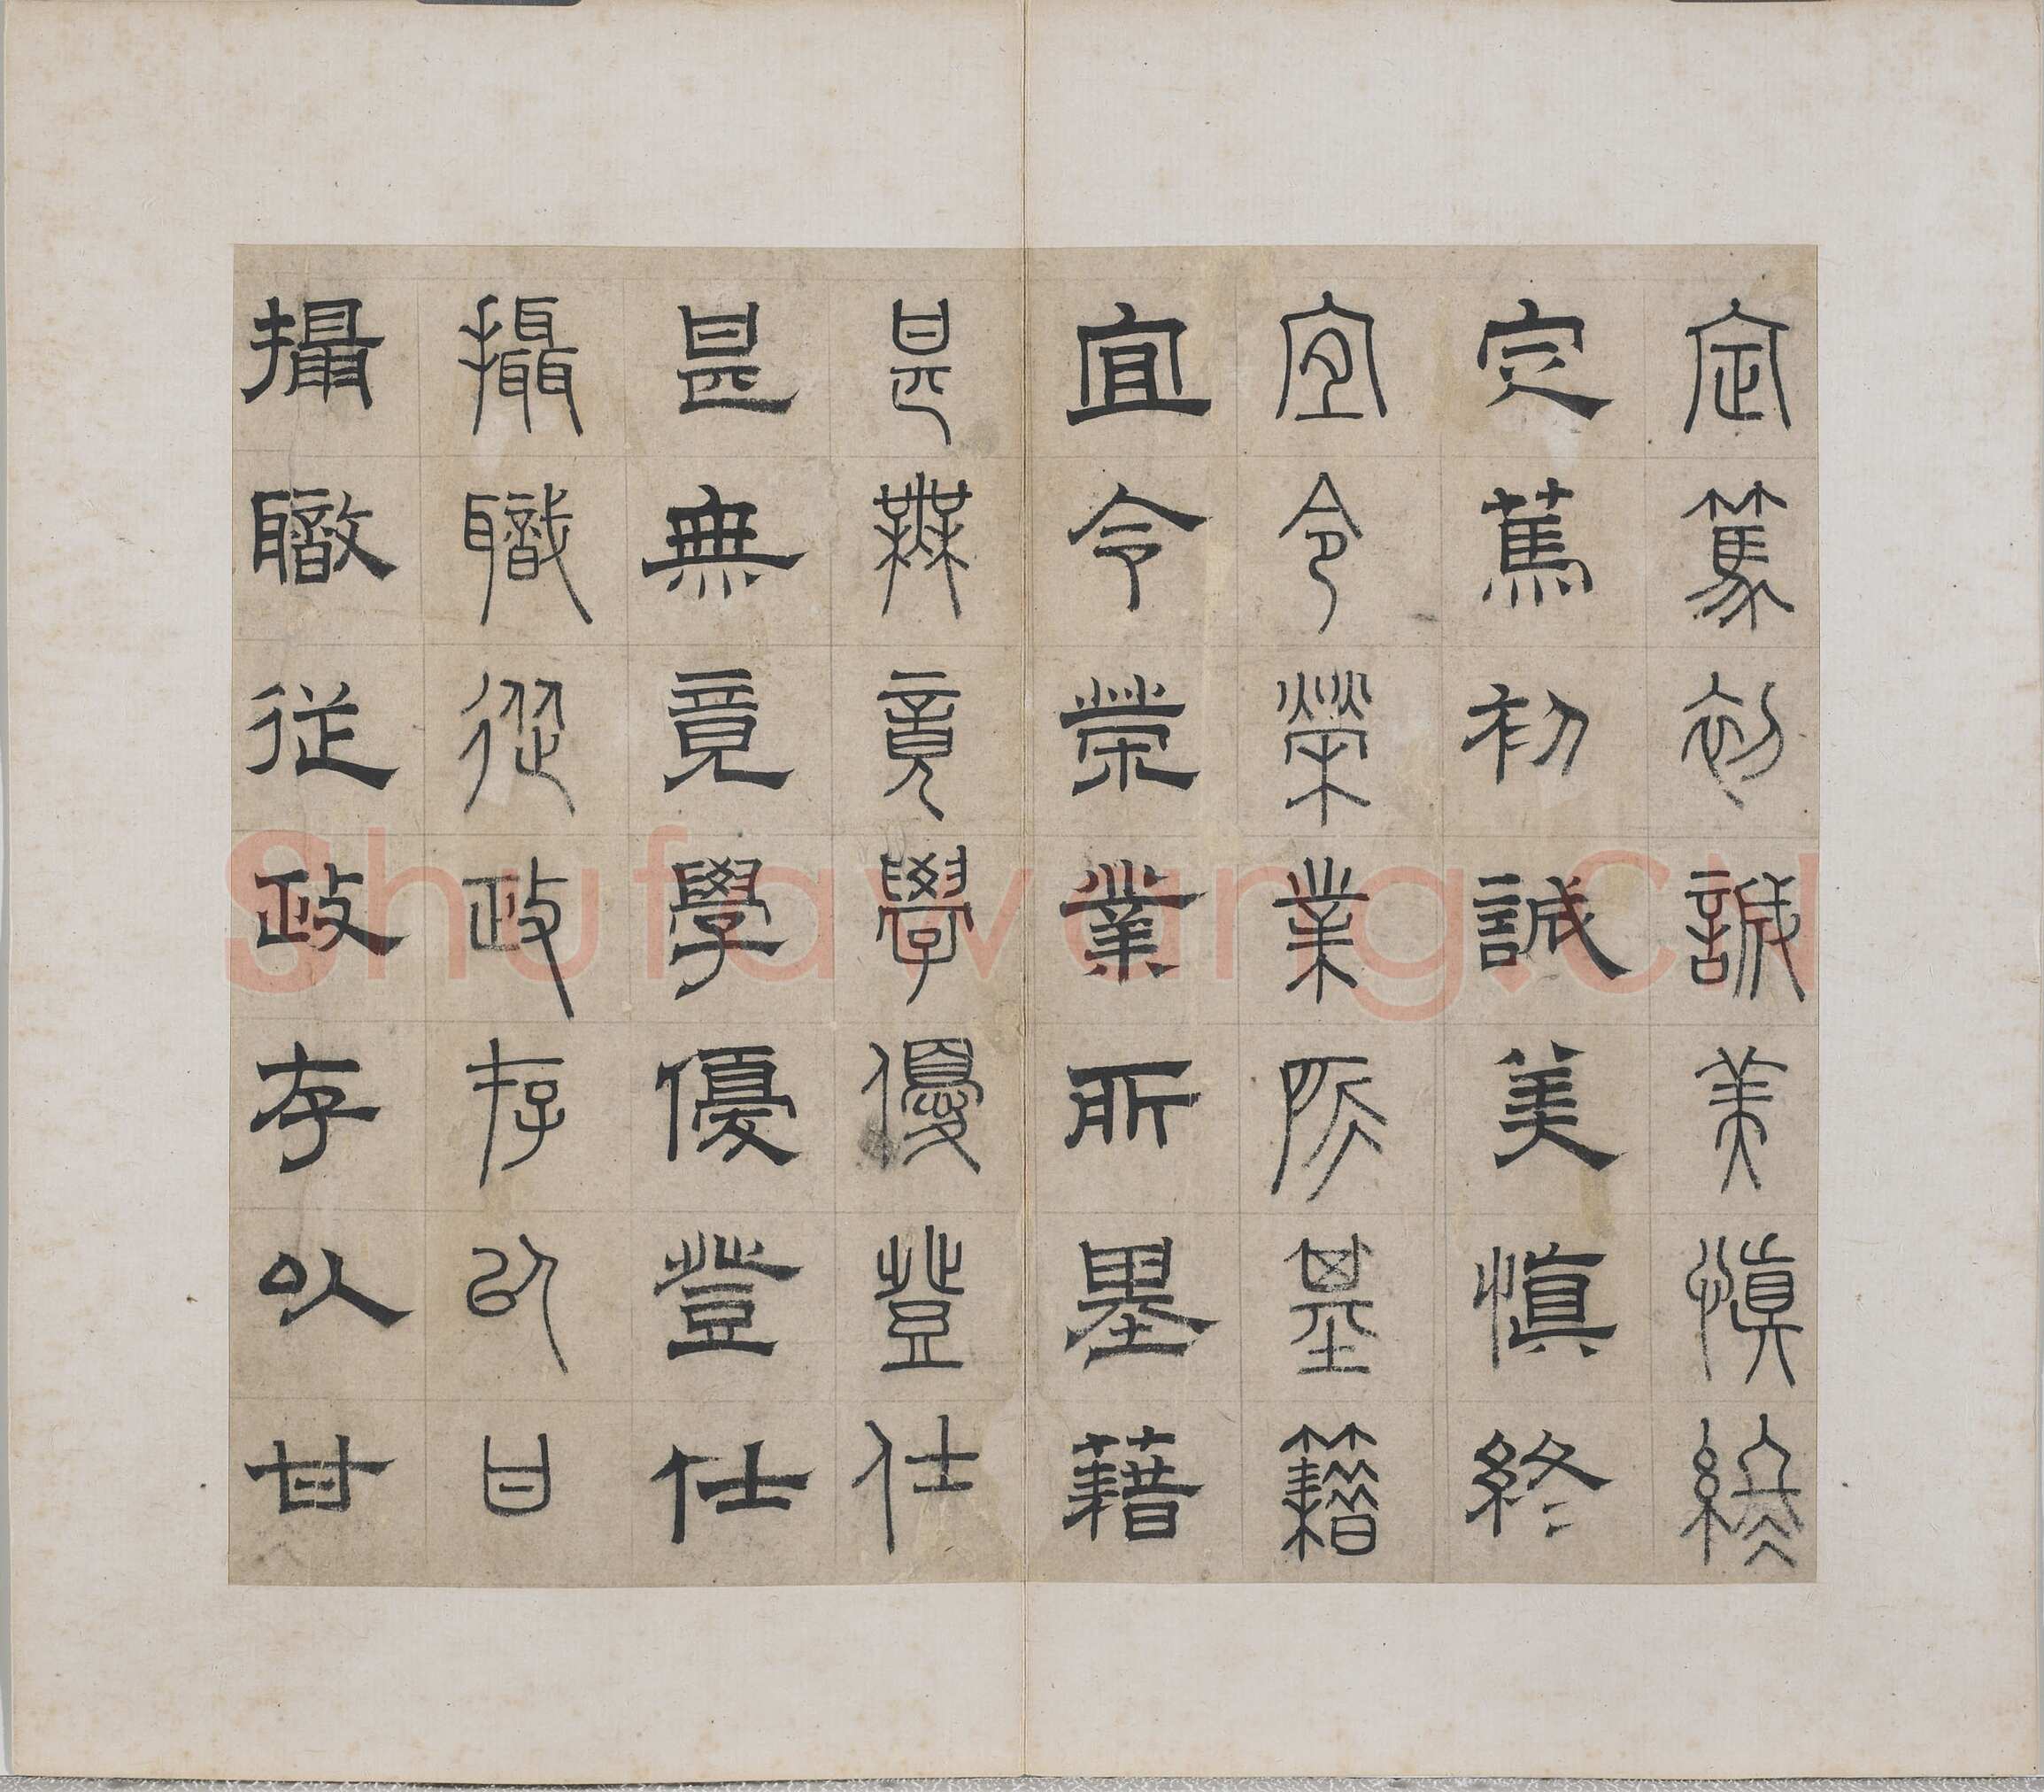 定篤初誠美慎終
定篤初誠美慎終
宜令榮業所基籍
宜令榮業所基藉
甚無竟學優登仕
甚無竟學優登仕
攝職從政存以甘
攝職從政存以甘
shufawang.cn